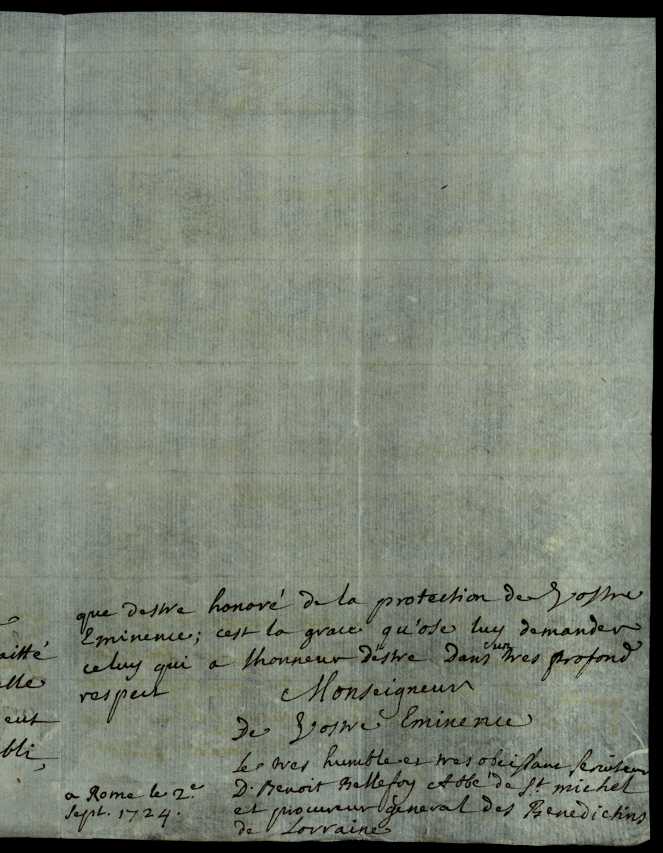 que destre honoré de la protection de Vostre
Eminence; cest la grace qu'ose luy demander
celuy qui a lhonneur destre dans un tres profond
respect Monseigneur
De Vostre Eminence
Le tres humble et tres obeissant serviteur
D. Benoit Bellefoy Abbé de St michel
et procureur general des Benedictins
de Lorraine
a Rome le 2e
Sept. 1724.
aitté
elle
eut
bli